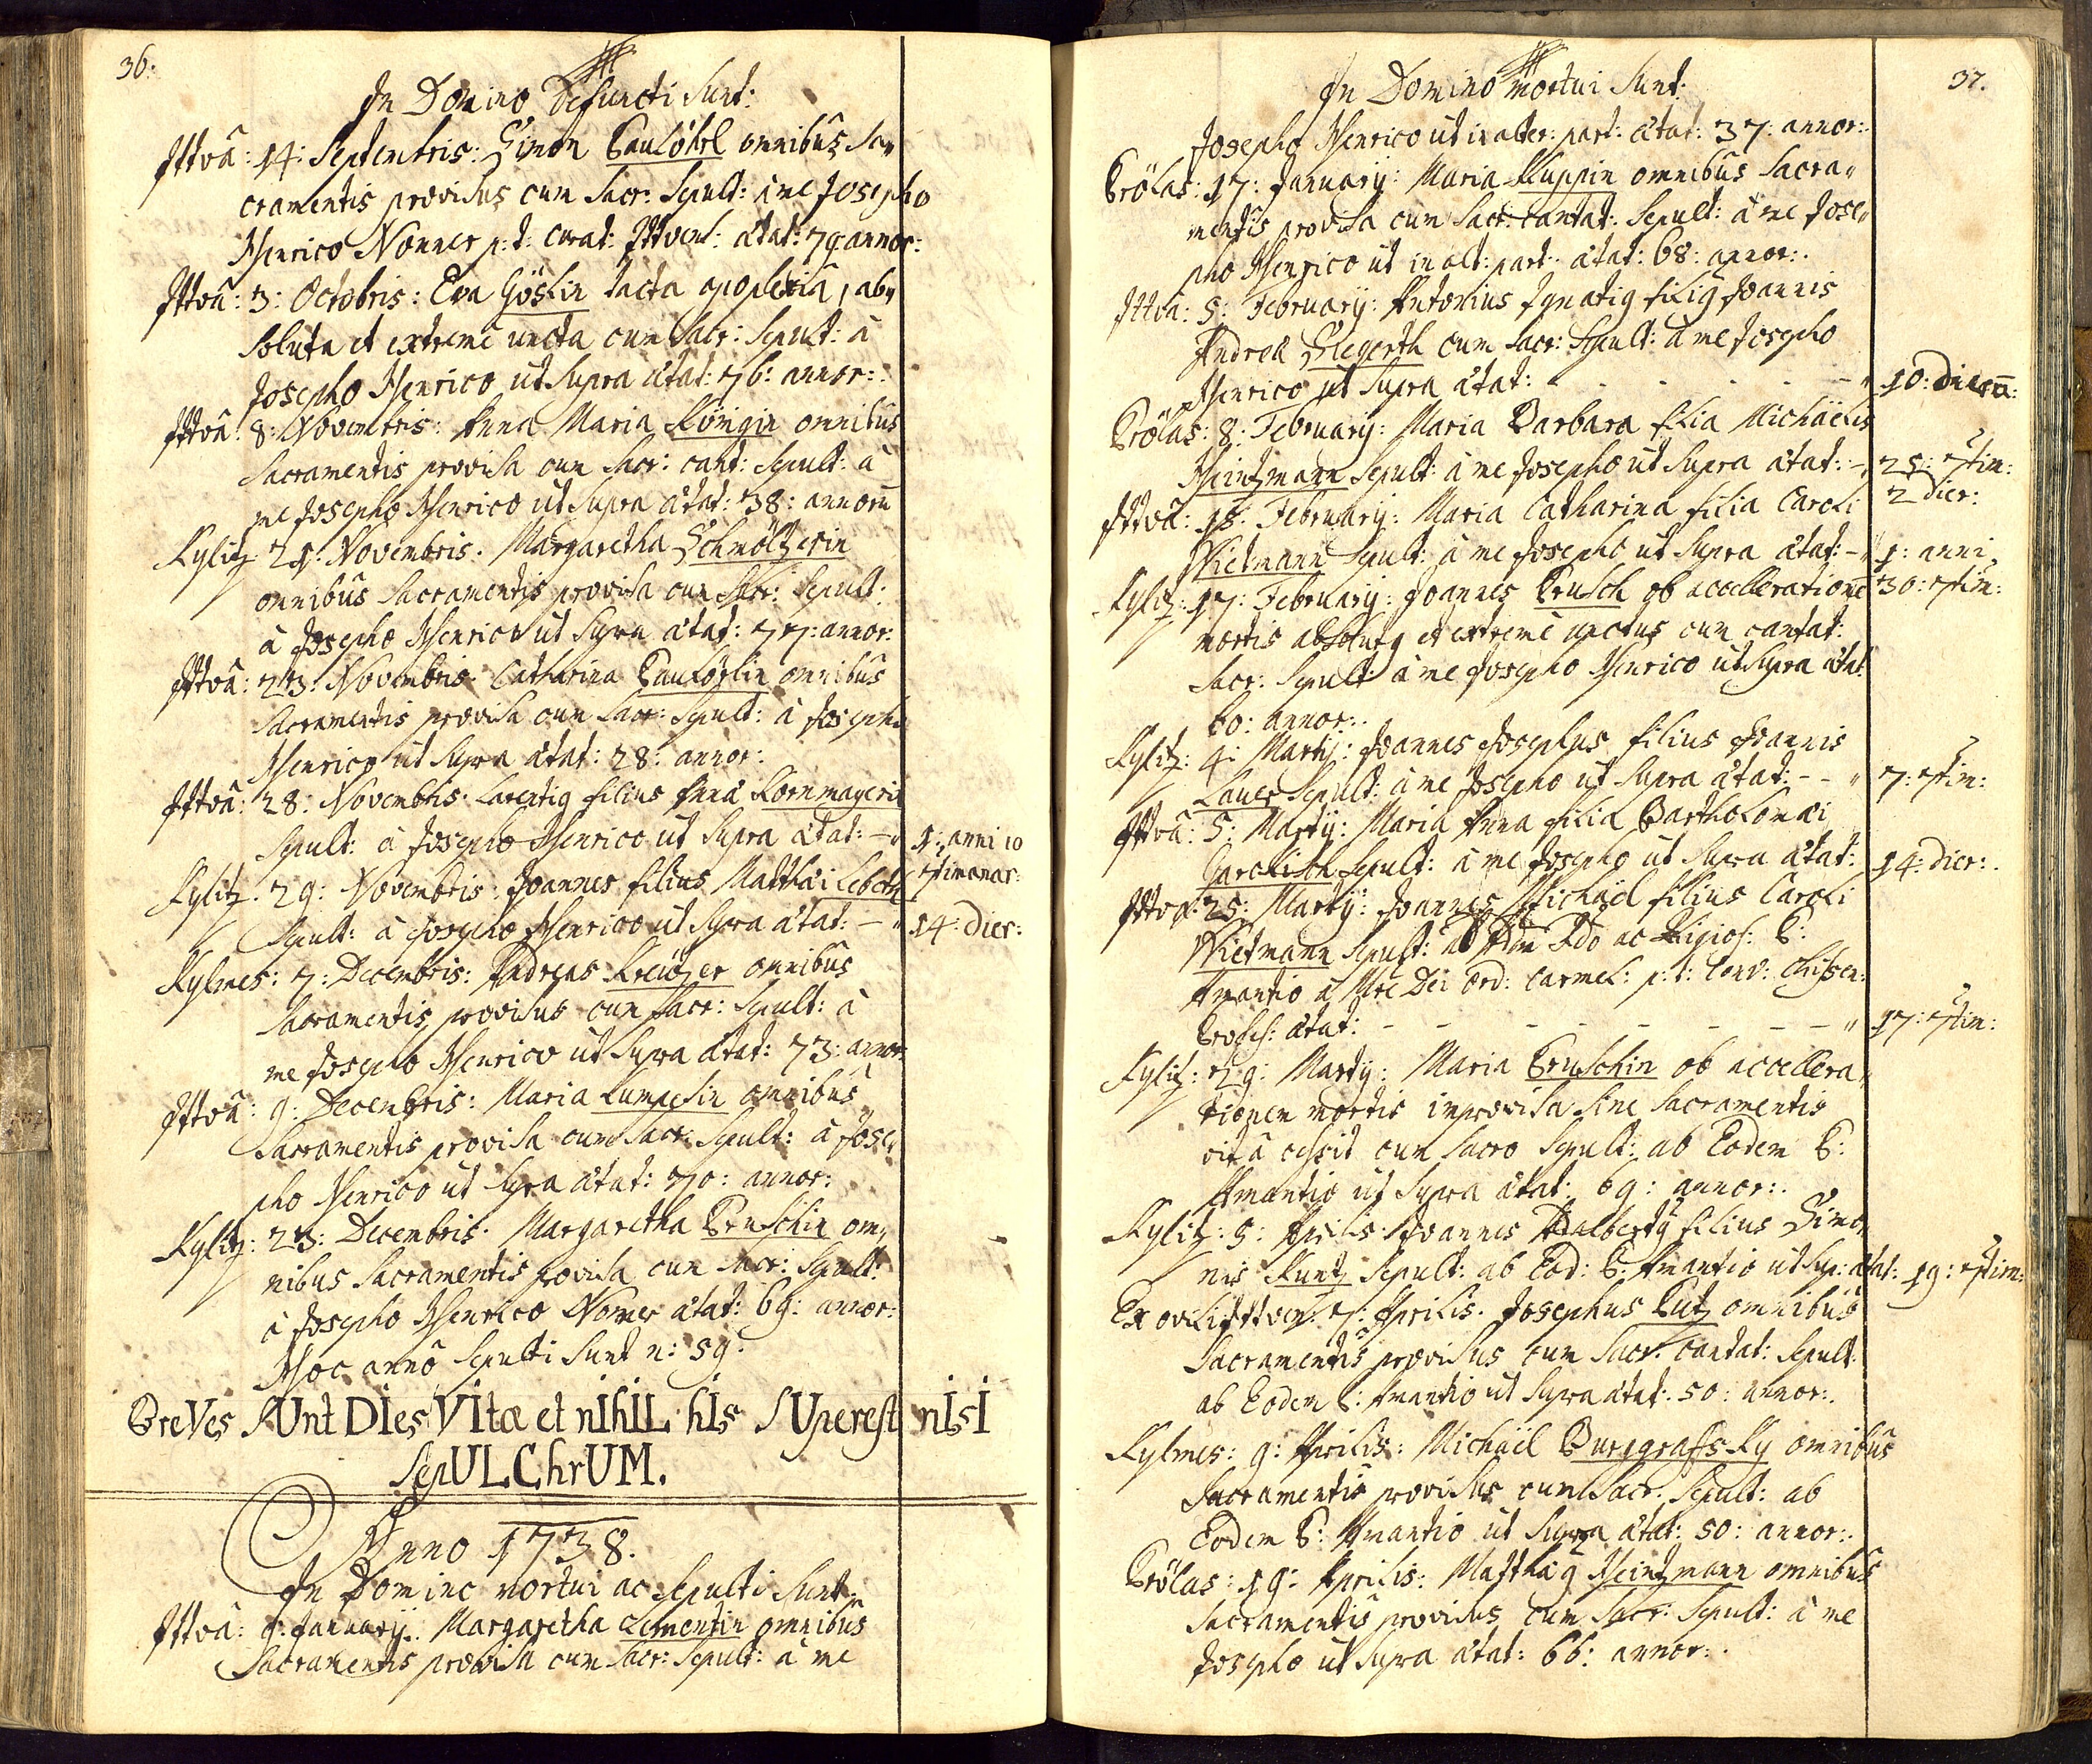 36.
In Domino Defuncti Sunt:
Ittvâ: 14: Septembris: Simon Paulöhrl omnibus Sa„
cramentis provisus cum Sacr: Sepult: â me Josepho
Henrico Nonner p: t: curat: Ittvens: ætat: 79 annor:
Ittvâ: 3: Octobris: Eva Göslin tacta apoplexiâ, ab„
soluta et extremè uncta cum Sacr: Sepult: â
Josepho Henrico ut Supra ætat: 76: annor:.
Ittvâ: 8: Novembris: Anna Maria Königin omnibus
Sacramentis provisa cum Sacr: cant: Sepult: â
me Josepho Henrico ut Supra ætat: 38: annorū
Kylitz: 21: Novembris: Margaretha Schmöltzerin
omnibus Sacramentis provisa cum Sacr: Sepult:
â Josepho Henrico ut Supra ætat: 77: annor:
Ittvâ: 23: Novembris: Catharina Paulörlin omnibus
Sacramentis provisa cum Sacr: Sepult: â Josepho
Henrico ut Supra ætat: 28: annor:
Ittvâ: 28: Novembris: Laurentig filius Annæ Kornmayerin
Sepult: â Josepho Henrico ut Supra ætat: – „ 1: anni 10
7timanar:
Kylitz: 29: Novembris: Joannes filius Matthæi Leberth
Sepult: â Josepho Henrico ut Supra ætat: – „ 14: dier:
Kylmes: 7: Decembris: Andreas Kreützer omnibus
Sacramentis provisus cum Sacr: Sepult: â
me Josepho Henrico ut Supra ætat: 73: annor:
Ittvâ: 9: Decembris: Maria Lumpesin omnibus
Sacramentis provisa cum Sacr: Sepult: â Jose„
pho Henrico ut Supra ætat: 70: annor:
Kylitz: 23: Decembris: Margaretha Pruschin om„
nibus Sacramentis provisa cum Sacr: Sepult:
â Josepho Henrico Noner ætat: 69: annor:
Hoc annô Sepulti Sunt n: 59:
BreVes sUnt DIes VItæ et nIhIL hIs sUperest nIsI
sepULChrUM.
Anno 1738.
In Domino mortui ac Sepulti Sunt:
Ittvâ: 8: January: Margaretha Lementin omnibus
Sacramentis provisa cum Sacr: Sepult: â me
37.
In Domino mortui Sunt:
Josepho Henrico ut in alter: part: ætat: 37: annor:.
Prölas: 17: January: Maria Kuppin omnibus Sacra„
mentis provisa cum Sacr: cantat: Sepult: â me Jose„
pho Henrico ut in alt: part: ætat: 68: annor:.
Ittvâ: 5: February: Antonius Ignatig filig Joannis
Andreæ Siegerth cum Sacr: Sepult: â me Josepho
Henrico ut Supra ætat: - - - - - „ 10: dierū:
Prölas: 8: February: Maria Barbara filia Michäelis
Heintzmann Sepult: â me Josepho ut Supra ætat: – „ 25: 7tim:
2 dier:
Ittvâ: 15: February: Maria Catharina filia Caroli
Wietmann Sepult: â me Josepho ut Supra ætat: – „ 1: anni
30: 7tim:
Kylitz: 17: February: Joannes Prusch ob accellerationē
mortis absolutg et extremè unctus cum cantat:
Sacr: Sepult: â me Josepho Henrico ut Supra ætat:
60: annor:.
Kylitz: 4: Martij: Joannes Josephus filius Joannis
Lauer Sepult: â me Josepho ut Supra ætat: – – „ 7: 7tim:
Ittvâ: 5: Martij: Maria Anna filia Bartholomæi
Garckisch Sepult: â me Josepho ut Supra ætat: 14: dier:.
Ittvâ: 25: Martij: Joannes Michäel filius Caroli
Wietmann Sepult: ab Adm Rdo ac Rligios: P:
Amantio â Mre Dei Ord: Carmel: p: t: Conv: Chisen:
Profess: ætat: – – – – – – – – „ 17: 7tim:
Kylitz: 29: Martij: Maria Pruschin ob accellera„
tionem mortis improvisa sine Sacramentis
vitâ cessit cum Sacro Sepult: ab Eodem P:
Amantio ut Supra ætat: 69: annor:.
Kylitz: 5: Aprilis: Joannes Adalbertg filius Simo„
nis Kuntz Sepult: ab Eod: P: Amantio ut Sup: ætat: 19: 7tim:
Ex ovili Ittven: 7: Aprilis: Josephus Lutz omnibus
Sacramentis provisus cum Sacr: cantat: Sepult:
ab Eodem P: Amantio ut Supra ætat: 50: annor:.
Kylmes: 9: Aprilis: Michäel Burggraffsky omnibus
Sacramentis provisus cum Sacr: Sepult: ab
Eodem P: Amantio ut Supra ætat: 50: annor:.
Prölas: 19: Aprilis: Matthäg Heintzmann omnibus
Sacramentis provisus cum Sacr: Sepult: â me
Josepho ut Supra ætat: 66: annor:.